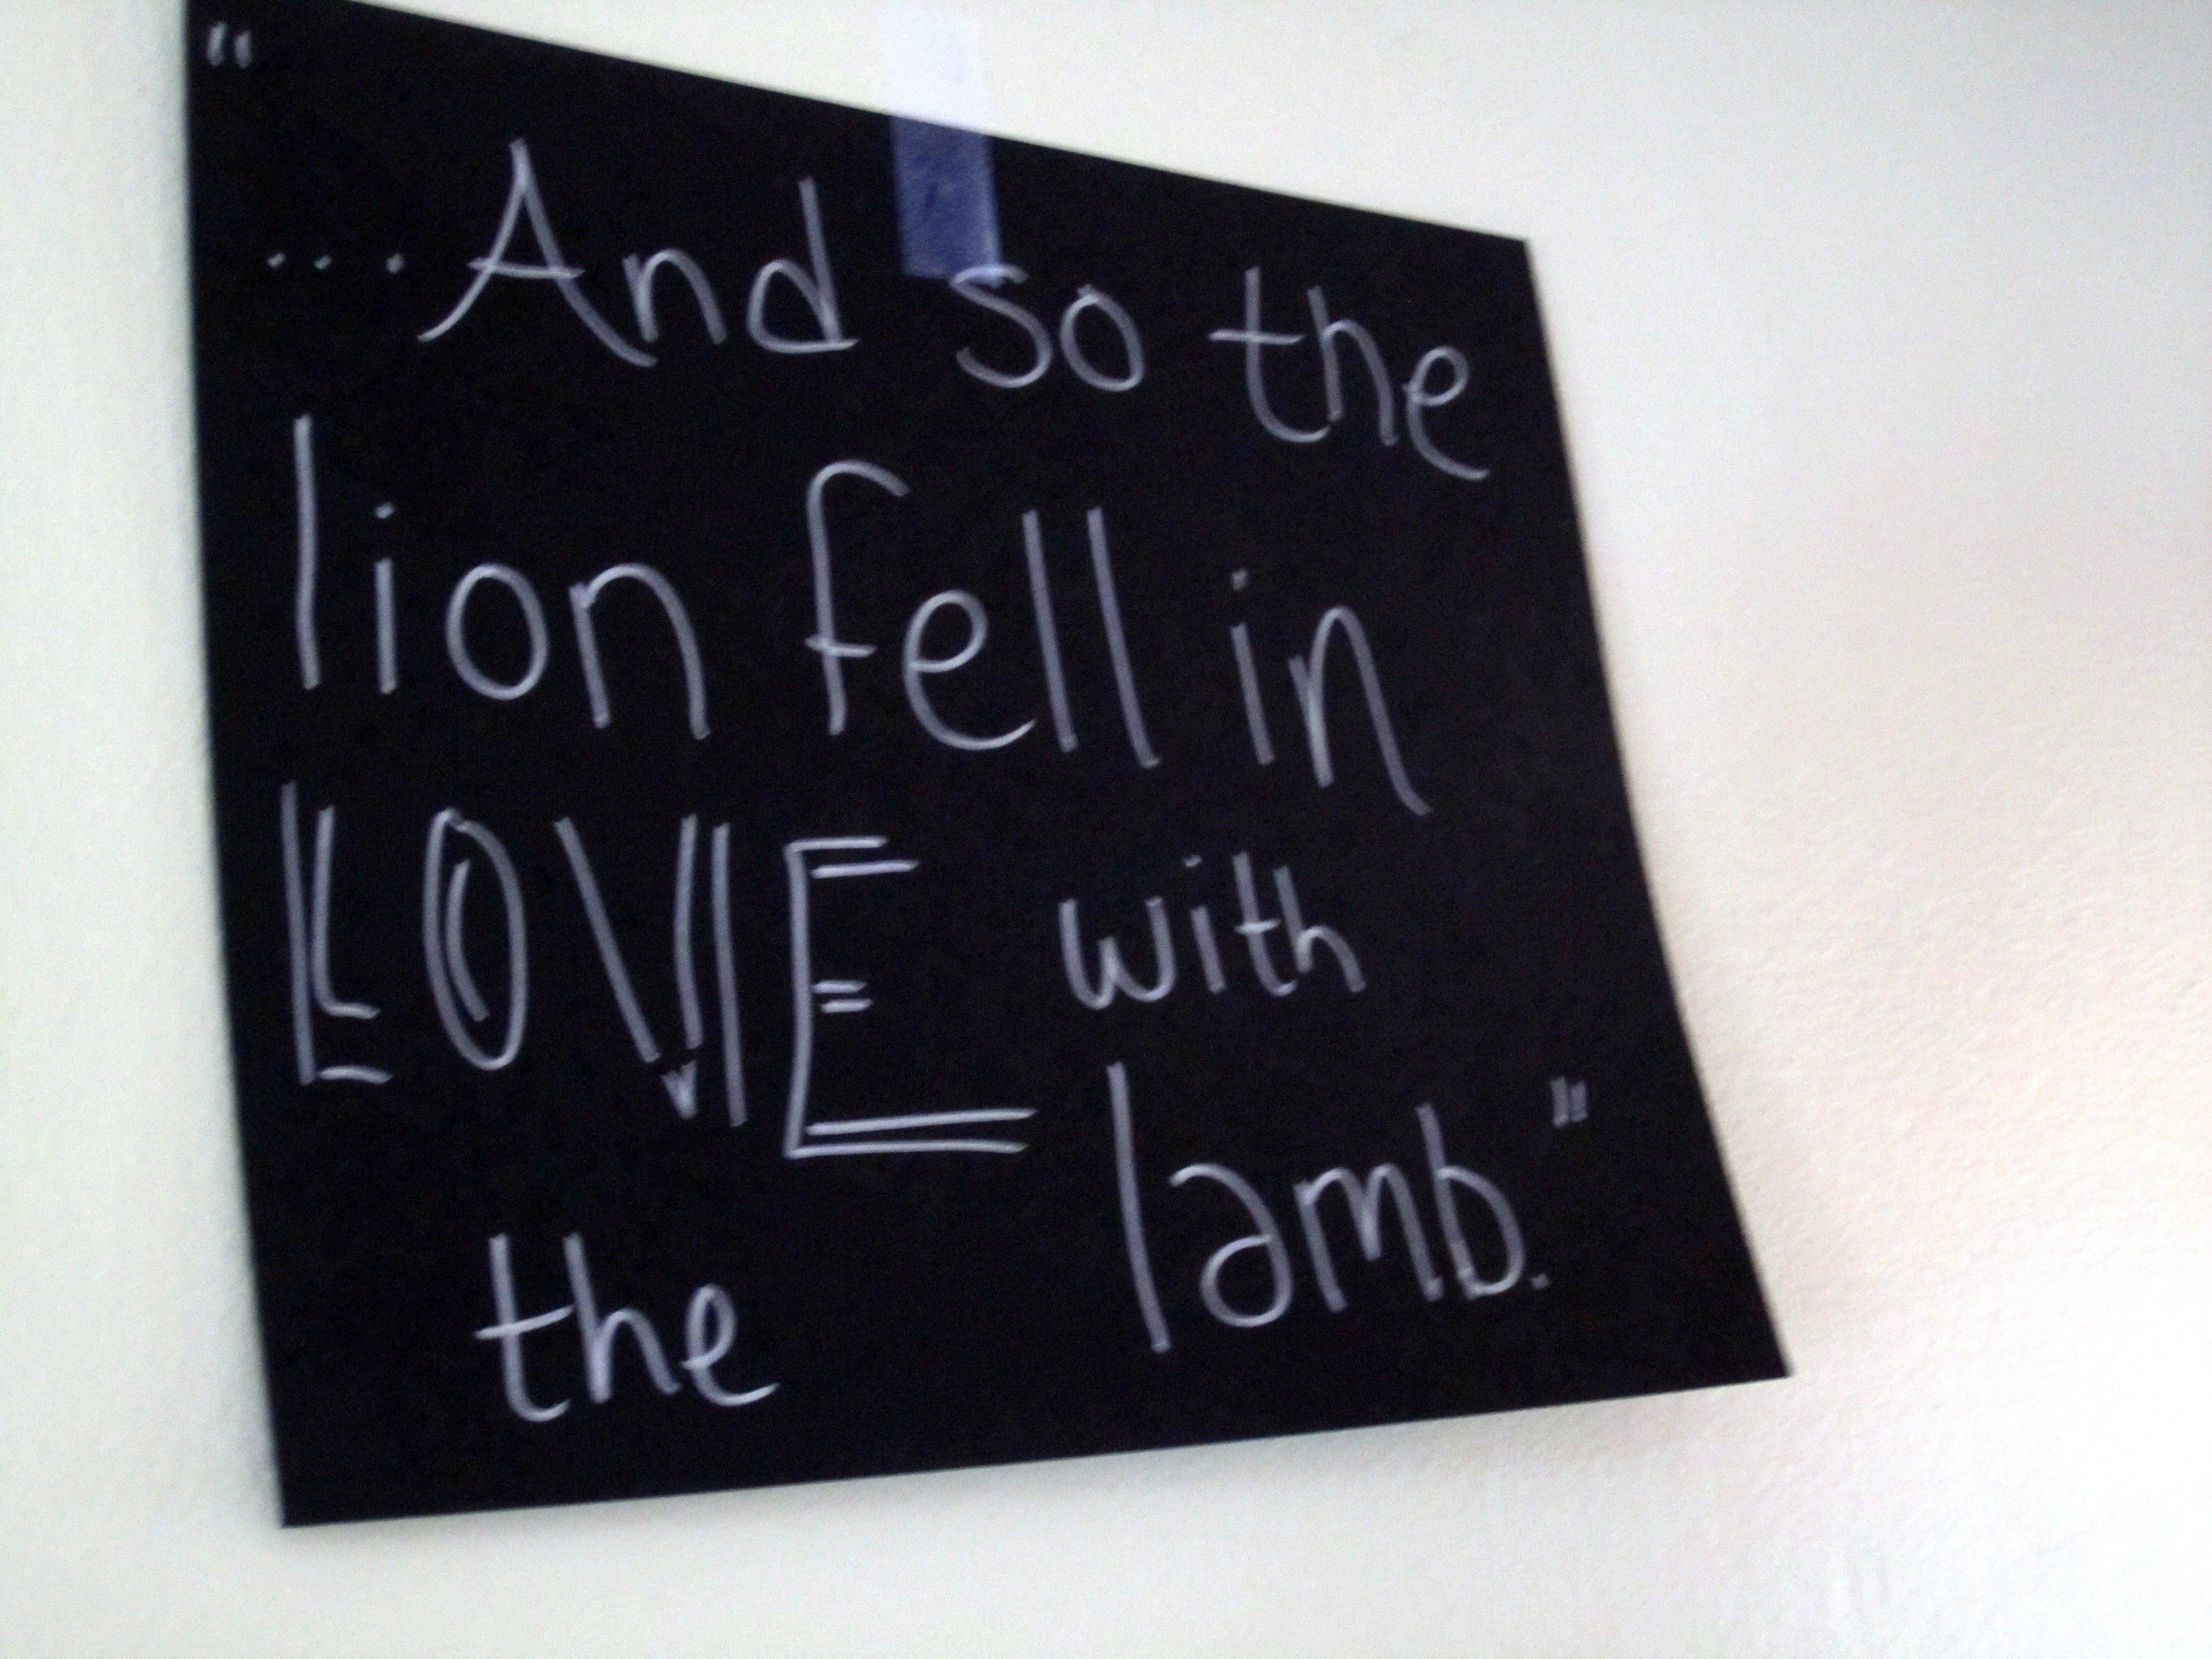 "
...And so the
lion fell in
LOVE with
the lamb."